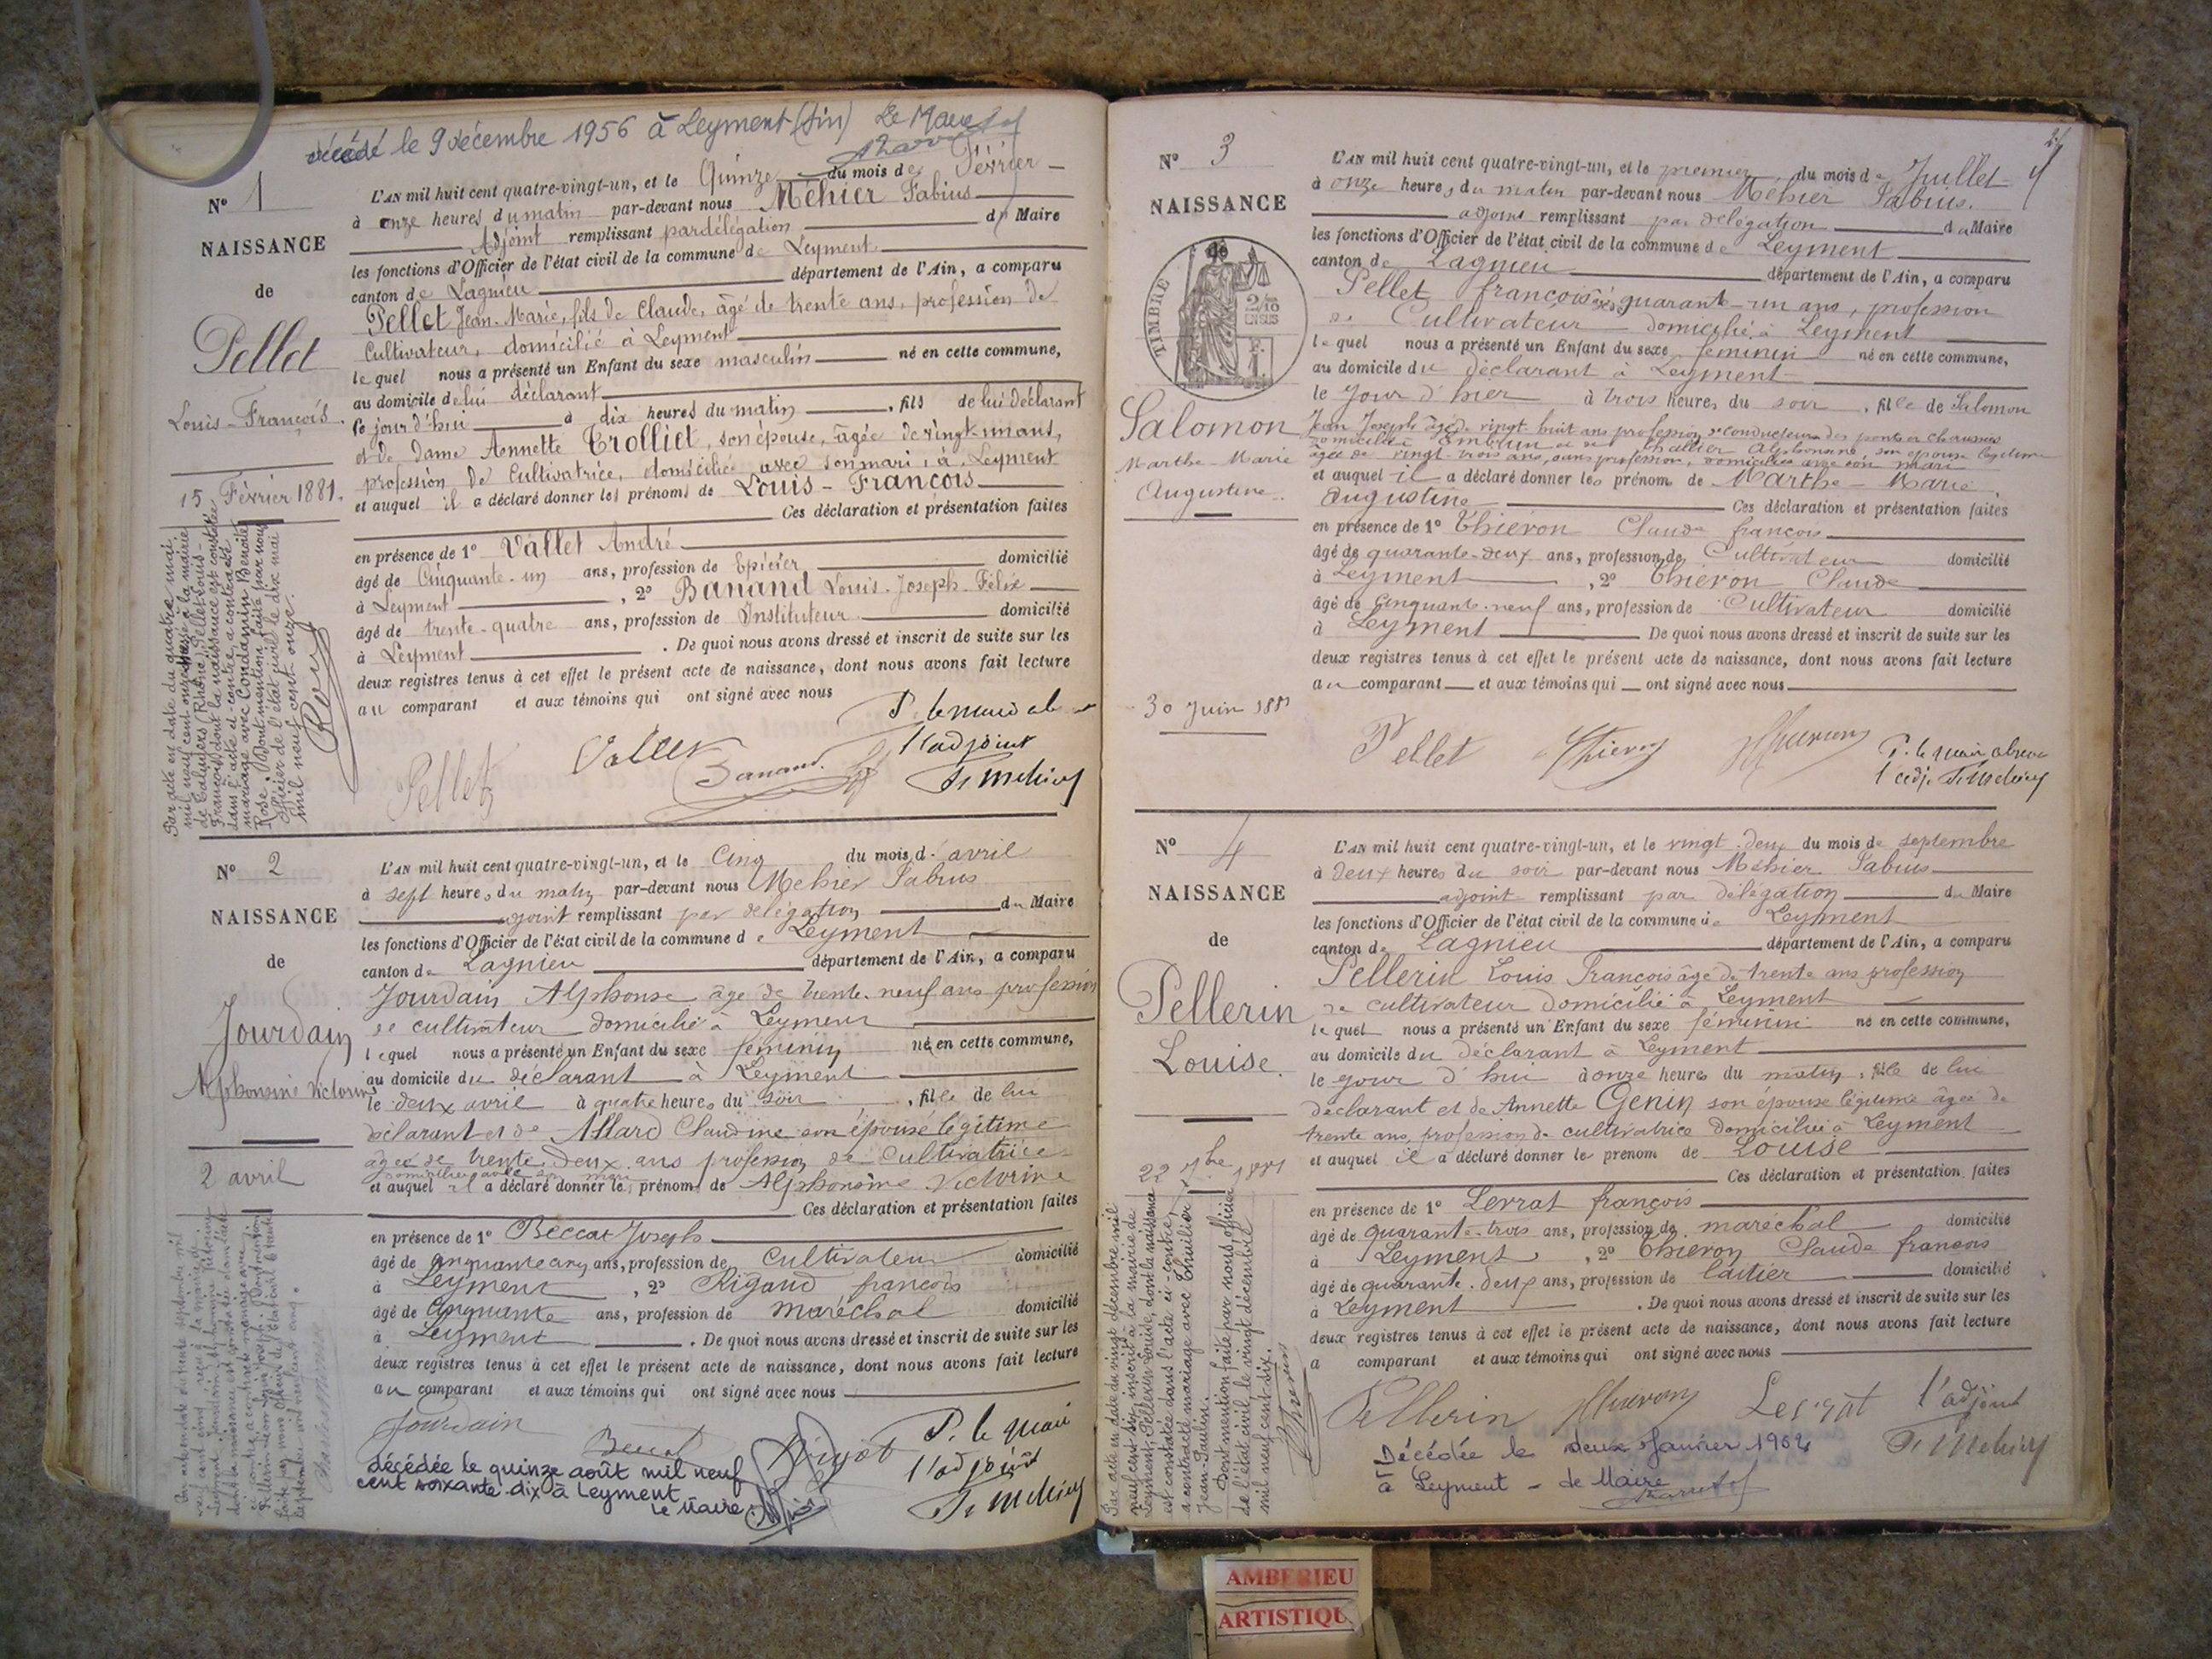 décédé le 9 décembre 1956 à Leyment (Ain) Le Maire
N° 1
NAISSANCE
de
Pellet
Louis-François.
15 Février 1881.
L'AN mil huit cent quatre-vingt-un, et le Quinze du mois de Février
à onze heures du matin par-devant nous Méhier Fabius
Adjoint remplissant par délégation du Maire
les fonctions d'Officier de l'état civil de la commune de Leyment
canton de Lagnieu département de l'Ain, a comparu
Pellet Jean-Marie, fils de Claude, âgé de trente ans, profession de
Cultivateur, domicilié à Leyment
lequel nous a présenté un Enfant du sexe masculin né en cette commune,
au domicile de lui déclarant
le jour d'hui à dix heures du matin, fils de lui déclarant
et de dame Annette Trolliet, son épouse, âgée de vingt-un ans,
profession de Cultivatrice, domiciliée avec son mari, à Leyment
et auquel il a déclaré donner les prénoms de Louis-François
Ces déclaration et présentation faites
en présence de 1° Vallet André
âgé de Cinquante-un ans, profession de Epicier domicilié
à Leyment, 2° Banand Louis-Joseph-Félix
âgé de trente-quatre ans, profession de Instituteur domicilié
à Leyment. De quoi nous avons dressé et inscrit de suite sur les
deux registres tenus à cet effet le présent acte de naissance, dont nous avons fait lecture
au comparant et aux témoins qui ont signé avec nous
Pellet Vallet Banand
P. le maire
l'adjoint
F. Mehier
Par acte en date du quatre mai
mil neuf cent onze à la mairie
de Caluire (Rhône), Pellet Louis-
François, dont la naissance est constatée
dans l'acte ci-contre, a contracté
mariage avec Condamin Benoîte
Rose. Dont mention faite par nous
officier de l'état civil le dix mai
mil neuf cent onze.
N° 2
NAISSANCE
de
Jourdain
Alphonsine Victorine
2 avril
L'AN mil huit cent quatre-vingt-un, et le Cinq du mois d'avril
à sept heures du matin par-devant nous Mehier Fabius
adjoint remplissant par délégation du Maire
les fonctions d'Officier de l'état civil de la commune de Leyment
canton de Lagnieu département de l'Ain, a comparu
Jourdain Alphonse âgé de trente-neuf ans profession
de cultivateur domicilié à Leyment
lequel nous a présenté un Enfant du sexe féminin né en cette commune,
au domicile du déclarant à Leyment
le deux avril à quatre heures du soir, fille de lui
déclarant et de Allard Claudine son épouse légitime
âgée de trente deux ans profession de Cultivatrice
domiciliée avec son mari
et auquel il a déclaré donner les prénoms de Alphonsine Victorine
Ces déclaration et présentation faites
en présence de 1° Beccat Joseph
âgé de cinquante cinq ans, profession de Cultivateur domicilié
à Leyment, 2° Rigaud françois
âgé de Cinquante ans, profession de maréchal domicilié
à Leyment. De quoi nous avons dressé et inscrit de suite sur les
deux registres tenus à cet effet le présent acte de naissance, dont nous avons fait lecture
au comparant et aux témoins qui ont signé avec nous
Jourdain Beccat
P. le maire
l'adjoint
F. Mehier
décédée le quinze août mil neuf
cent soixante-dix à Leyment
Le Maire
N° 3
NAISSANCE
de
TIMBRE
Salomon
Marthe-Marie
Augustine.
30 Juin 1881
L'AN mil huit cent quatre-vingt-un, et le premier du mois de Juillet
à onze heures du matin par-devant nous Mehier Fabius.
adjoint remplissant par délégation du Maire
les fonctions d'Officier de l'état civil de la commune de Leyment
canton de Lagnieu département de l'Ain, a comparu
Pellet françois âgé quarante-un ans, profession
de Cultivateur domicilié à Leyment
lequel nous a présenté un Enfant du sexe féminin né en cette commune,
au domicile du déclarant à Leyment
le Jour d'hier à trois heures du soir, fille de Salomon
Jean Joseph âgé de vingt huit ans profession de conducteur des ponts et chaussées
domicilié à Embrun et de son épouse légitime
âgée de vingt-trois ans, sans profession, domiciliée avec son mari
et auquel il a déclaré donner les prénoms de Marthe-Marie
Augustine Ces déclaration et présentation faites
en présence de 1° Thieron Claude françois
âgé de quarante-deux ans, profession de Cultivateur domicilié
à Leyment, 2° Thieron Claude
âgé de Cinquante-neuf ans, profession de Cultivateur domicilié
à Leyment De quoi nous avons dressé et inscrit de suite sur les
deux registres tenus à cet effet le présent acte de naissance, dont nous avons fait lecture
au comparant et aux témoins qui ont signé avec nous
Pellet Thieron Thieron
P. le maire
l'adj. F. Mehier
N° 4
NAISSANCE
de
Pellerin
Louise.
22 7bre 1881
L'AN mil huit cent quatre-vingt-un, et le vingt-deux du mois de septembre
à deux heures du soir par-devant nous Méhier Fabius
adjoint remplissant par délégation du Maire
les fonctions d'Officier de l'état civil de la commune de Leyment
canton de Lagnieu département de l'Ain, a comparu
Pellerin Louis François âgé de trente ans profession
de cultivateur domicilié à Leyment
lequel nous a présenté un Enfant du sexe féminin né en cette commune,
au domicile du déclarant à Leyment
le jour d'hui à onze heures du matin, fille de lui
déclarant et de Annette Genin son épouse légitime âgée de
trente ans, profession de cultivatrice domiciliée à Leyment
et auquel il a déclaré donner le prénom de Louise
Ces déclaration et présentation faites
en présence de 1° Levrat françois
âgé de quarante-trois ans, profession de maréchal domicilié
à Leyment, 2° Thieron Claude francois
âgé de quarante-deux ans, profession de laitier domicilié
à Leyment. De quoi nous avons dressé et inscrit de suite sur les
deux registres tenus à cet effet le présent acte de naissance, dont nous avons fait lecture
a comparant et aux témoins qui ont signé avec nous
Pellerin Thieron Levrat
l'adjoint
F. Mehier
Décédée le deux Janvier
à Leyment - Le Maire
Par acte en date du vingt décembre mil
neuf cent dix, inscrit à la mairie de
Leyment, Pellerin Louise, dont la naissance
est constatée dans l'acte ci-contre,
a contracté mariage avec
Jean-Paulin.
Dont mention faite par nous officier
de l'état civil, le vingt décembre
mil neuf cent dix.
AMBERIEU
ARTISTIQU